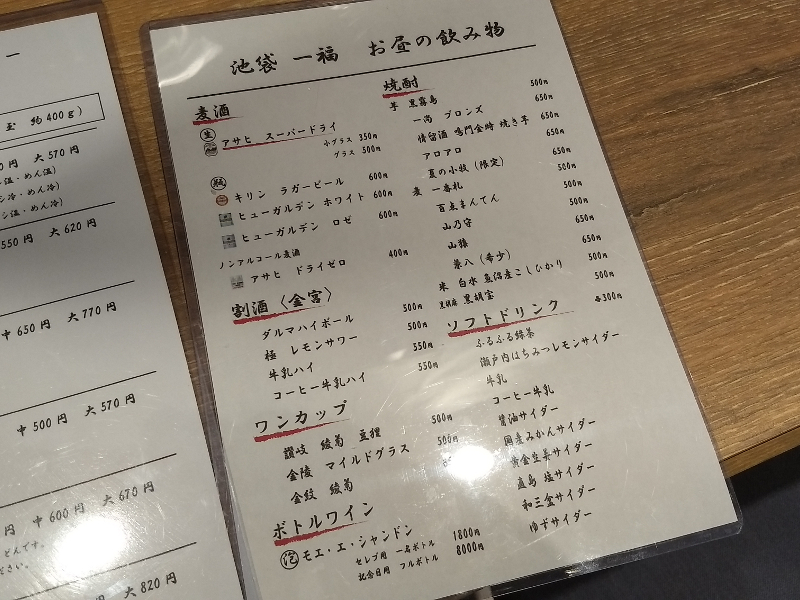 玉 約400g)
円 大570円
温・めん温)
シ冷・めん冷)
シ温・めん冷)
550円 大620円
中650円 大770円
中500円 大570円
円 中600円 大670円
どんです。
ださい。
円 大820円
池袋 一福 お昼の飲み物
麦酒
生 アサヒ スーパードライ
小グラス 350円
グラス 500円
瓶
キリン ラガービール 600円
ヒューガルデン ホワイト 600円
ヒューガルデン ロゼ 600円
ノンアルコール麦酒
アサヒ ドライゼロ 400円
割酒〈金宮〉
ダルマハイボール 500円
極 レモンサワー 500円
牛乳ハイ 550円
コーヒー牛乳ハイ 550円
ワンカップ
讃岐 綾菊 豆狸 500円
金陵 マイルドグラス 500円
金紋 綾菊
ボトルワイン
泡 モエ・エ・シャンドン
セレブ用 一名ボトル 1800円
記念日用 フルボトル 8000円
焼酎
芋 黒霧島 500円
一尚 ブロンズ 650円
情留酒 鳴門金時 焼き芋 650円
アロアロ 650円
夏の小牧(限定) 650円
麦 一番札 500円
百点まんてん 500円
山乃守 500円
山猿 650円
兼八(希少) 650円
米 白水 魚沼産こしひかり 500円
黒胡麻 黒胡宝 500円
ソフトドリンク 各300円
ふるふる緑茶
瀬戸内はちみつレモンサイダー
牛乳
コーヒー牛乳
醤油サイダー
国産みかんサイダー
黄金生姜サイダー
直島 塩サイダー
和三盆サイダー
ゆずサイダー